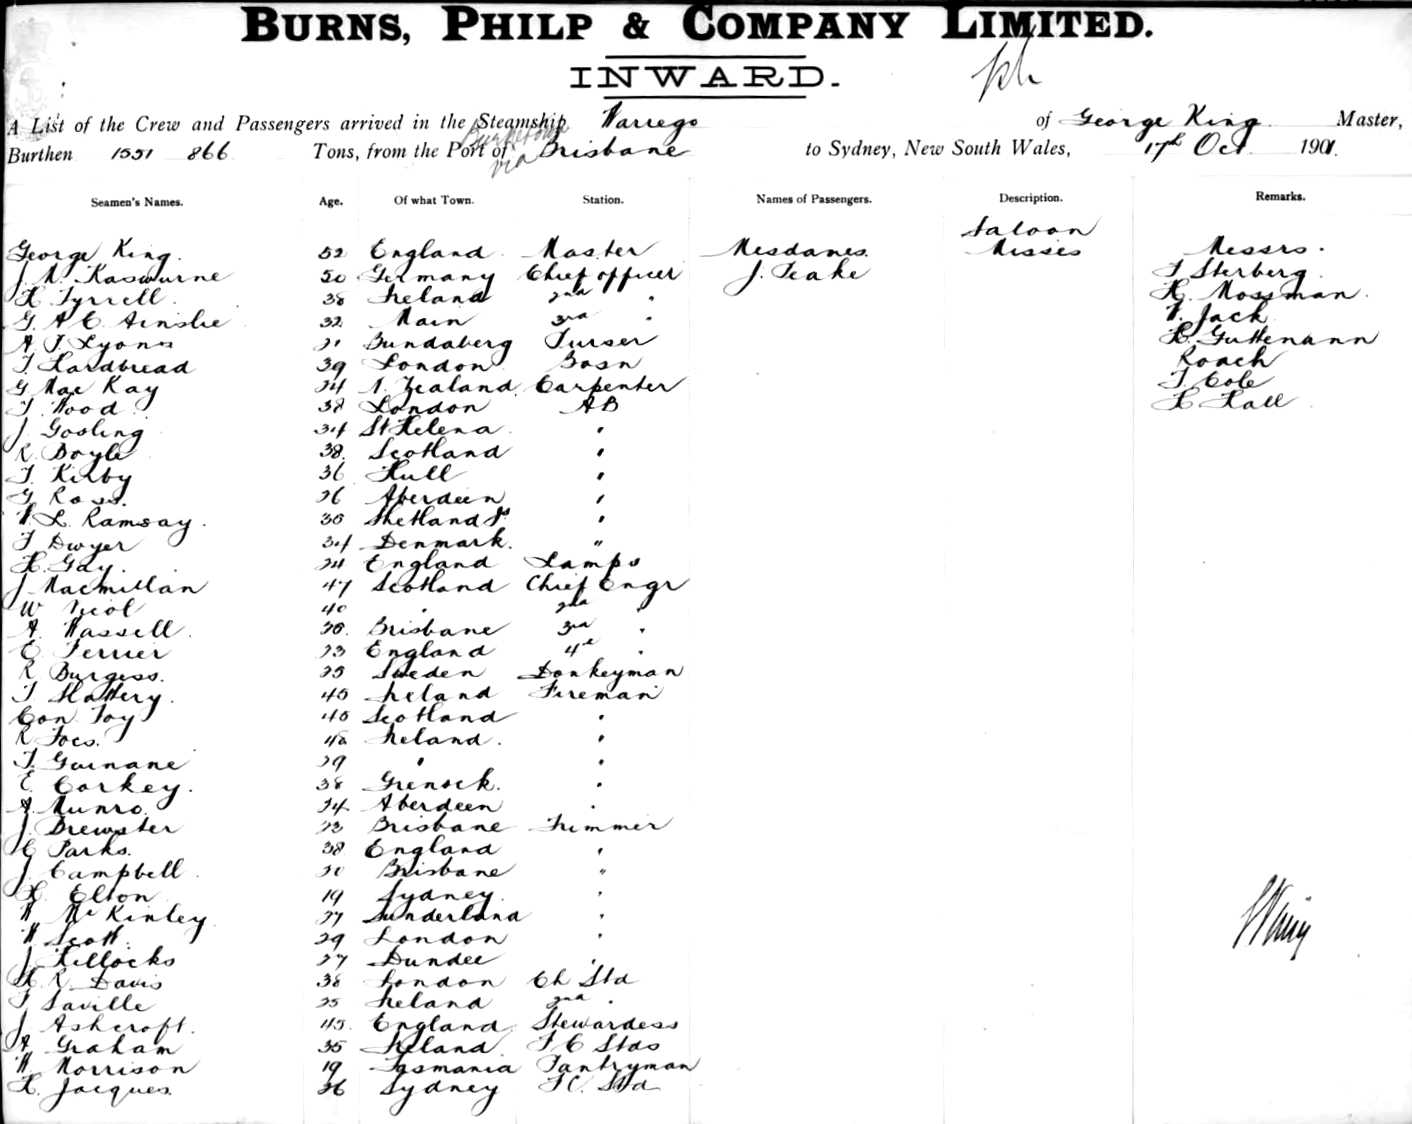 BURNS, PHILP & COMPANY LIMITED.
INWARD.
A List of the Crew and Passengers arrived in the Steamship Warrego of George King Master,
Burthen 1551 866 Tons, from the Port of via Brisbane to Sydney, New South Wales, 17th Oct 1901.
Seamen's Names. Age. Of what Town. Station. Names of Passengers. Description. Remarks.
Saloon
George King. 52 England Master Mesdames. Misses Messrs.
J. M. 50 Germany Chief officer J. Peake F Sterberg
H Tyrrell. 38 Ireland 2nd " H. Mossman.
G. A C. Ainslie 32 3rd " W. Jack
A J. Lyons 21 Bundaberg Purser H. Guttemann
T. Hardbread 39 London Bosn Roach
G MacKay 24 N. Zealand Carpenter T Cole
T Wood 38 London AB H Hall
J. Gosling 34 St Helena "
R. Doyle 38 Scotland "
T. Kirby 36 Hull "
G Ross. 26 Aberdeen "
W. L. Ramsay. 30 Shetland Is "
T Dwyer 34 Denmark. "
H. Gay. 24 England Lamps
J. Macmillan 47 Scotland Chief Engr
W Nicol 40 " 2nd "
A. Wassell. 28. Brisbane 3rd "
E Ferrier 23 England 4th "
R Burgess. 25 Sweden Donkeyman
T Slattery. 45 Ireland Fireman
Con Foy 40 Scotland "
R Foes. 48 Ireland. "
T. Guinane 29 " "
E. Corkey. 38 Grenock. "
A. Munro. 24 Aberdeen "
J. Brewster 23 Brisbane Trimmer
C Parks. 38 England "
J. Campbell 20 Brisbane "
H. Elton 19 Sydney. "
W McKinley 27 Sunderland "
W Scott. 29 London "
J. Killocks 27 Dundee "
H R. Davis 38 London Ch Std
F Saville 25 Ireland 2nd "
J Ashcroft. 45. England Stewardess
A Graham 35 Ireland F C Stds
W Morrison 19 Tasmania Pantryman
H. Jacques. 26 Sydney F C. Std